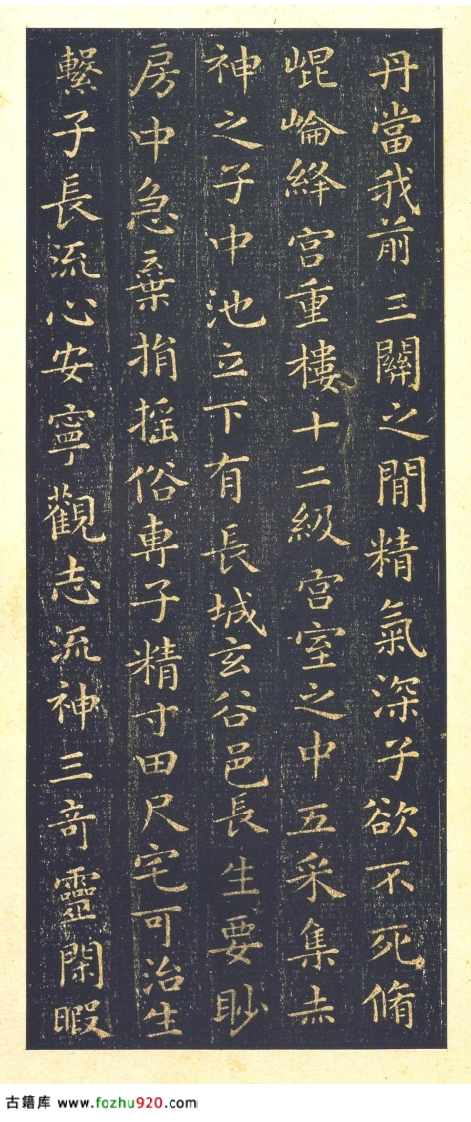 丹當我前三關之閒精氣深子欲不死脩
崐崘絳宮重樓十二級宮室之中五采集赤
神之子中池立下有長城玄谷邑長生要眇
房中急棄捐摇俗専子精寸田尺宅可治生
繫子長流心安寧觀志流神三奇靈閑暇
古籍库 www.fozhu920.com